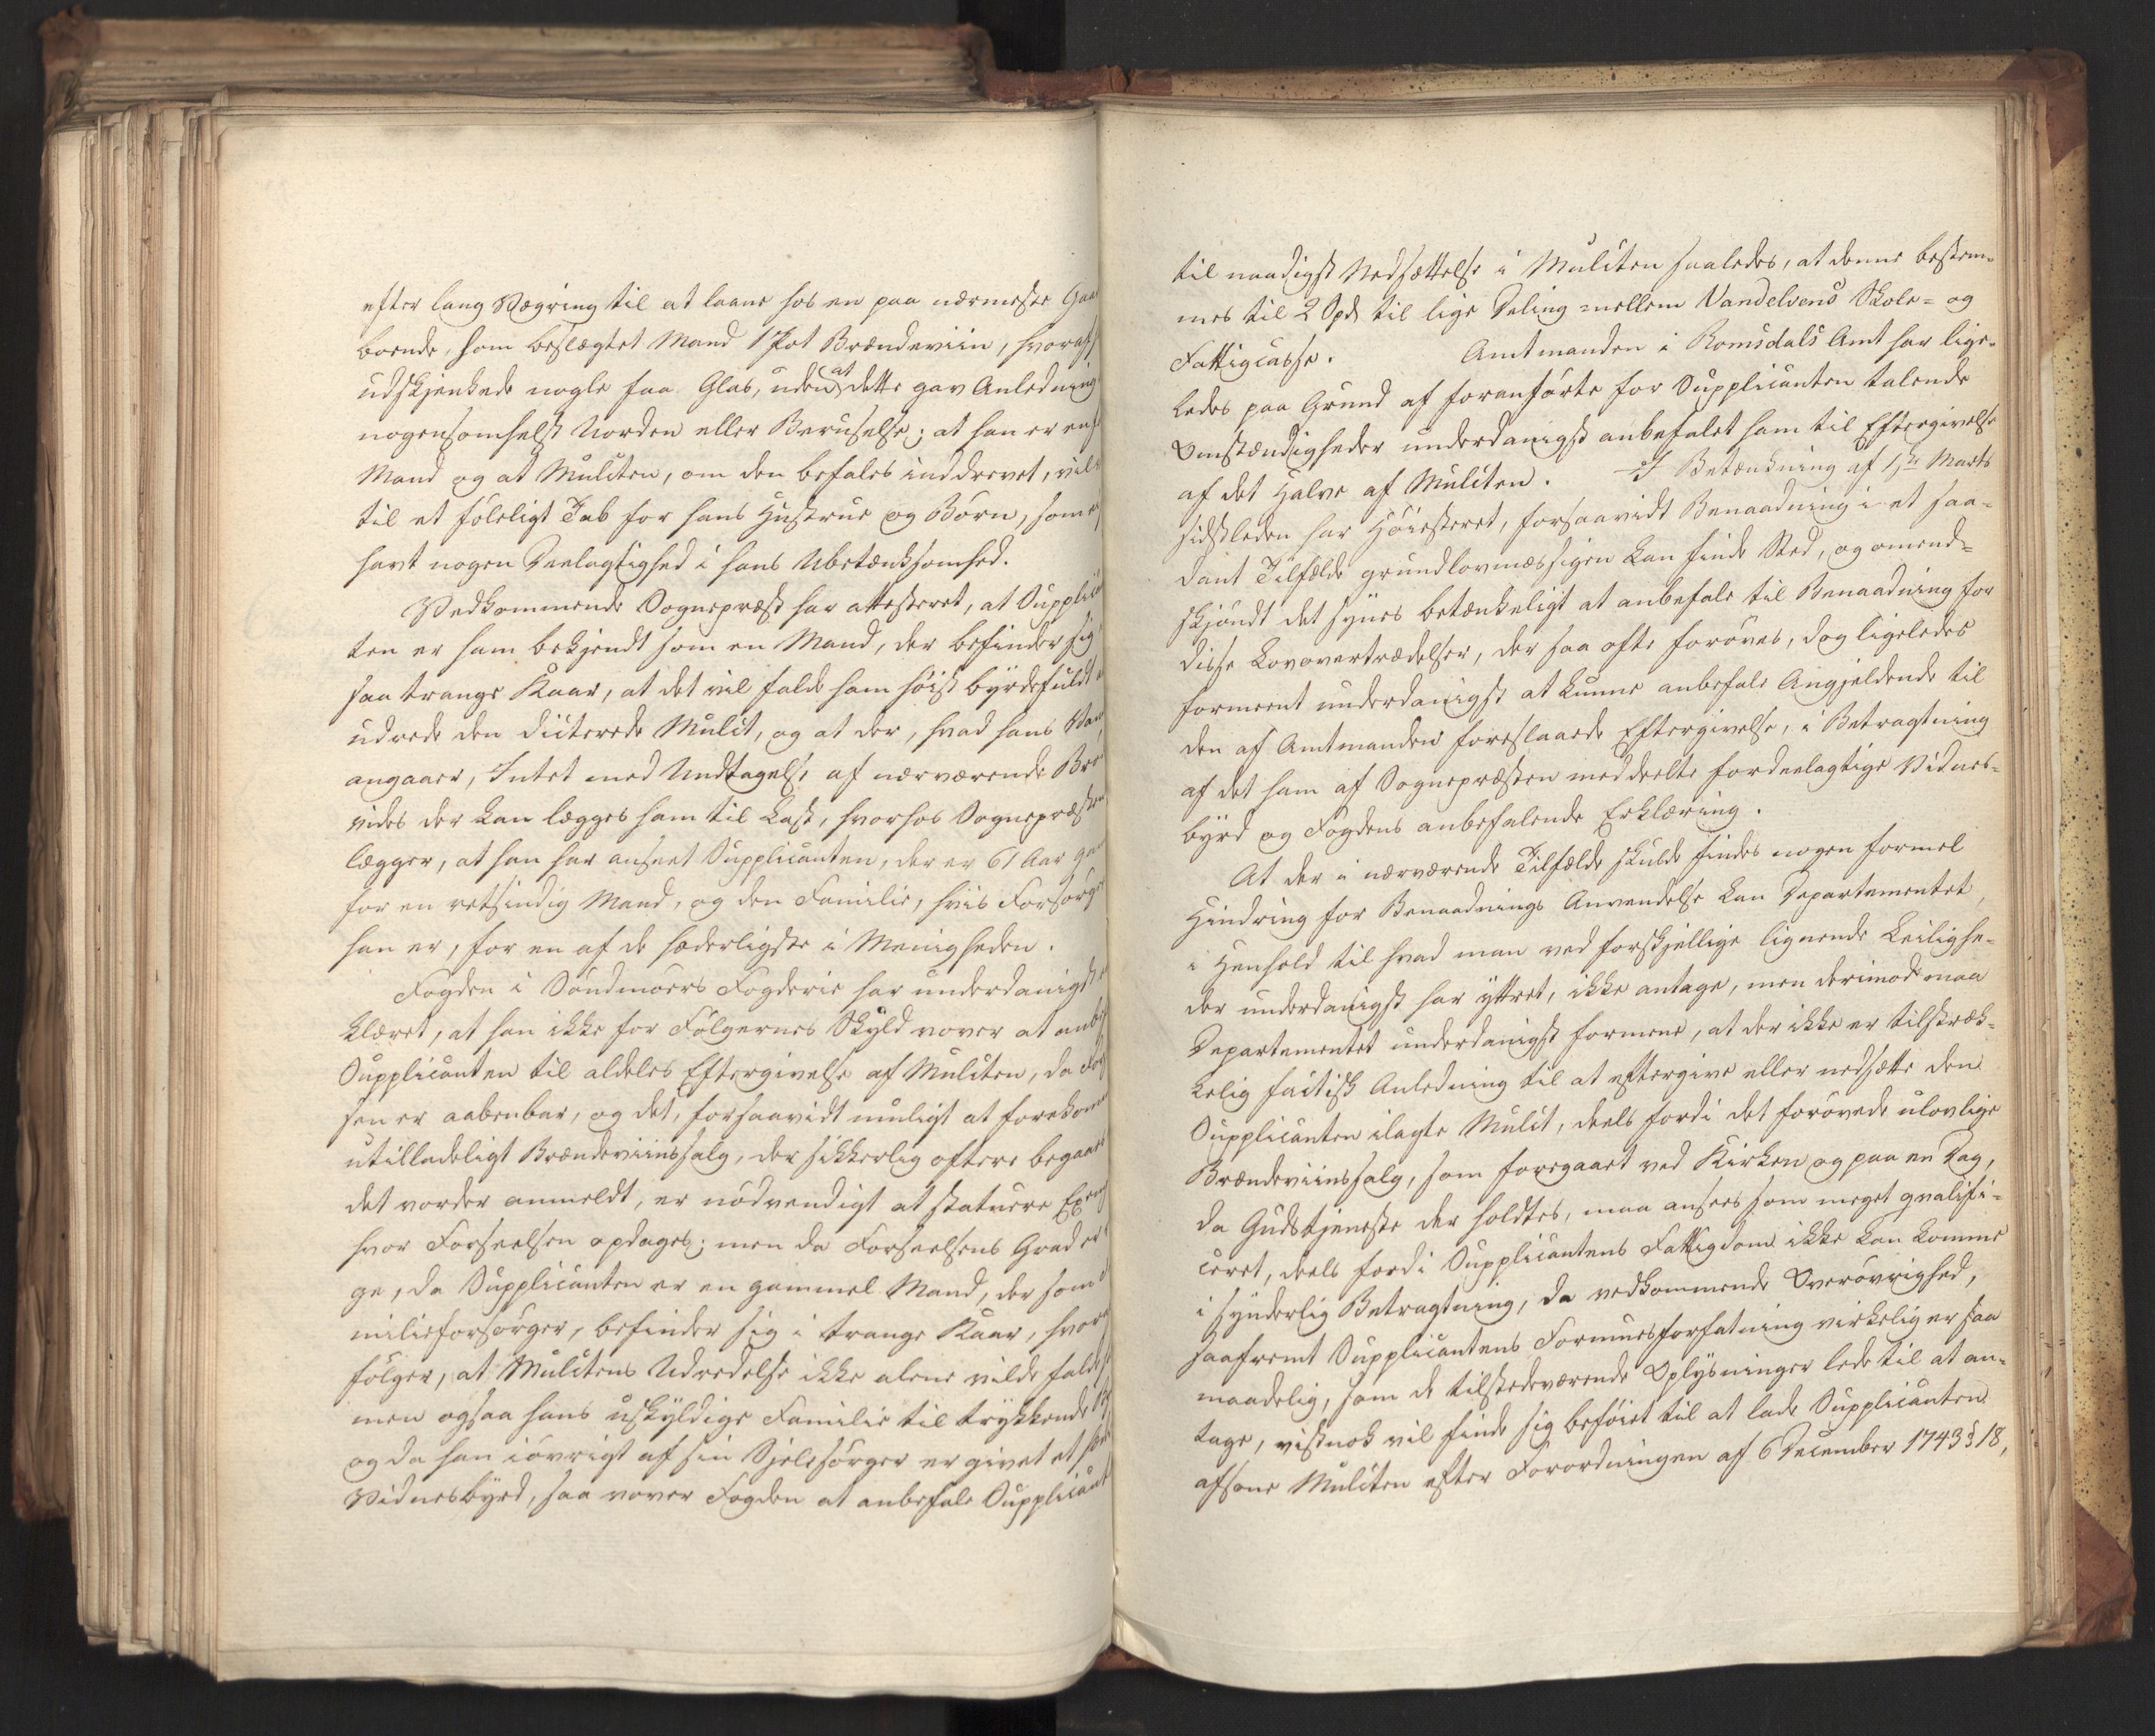 efter lang Vægring til at laane hos en paa nærmeste Gaa
boende, ham beslægtet Mand 1 Pot Brændeviin, hvoraf
udskjenkede nogle faa Glas, uden at dette gav Anledning
nogensomhelst Uorden eller Beruselse; at han er en
Mand og at Mulcten, om den befales inddrevet, vil
til et føleligt Tab for hans Hustrue og Børn, som
havt nogen Deelagtighed i hans Ubetænksomhed.
Vedkommende Sognepræst har attesteret, at Supplic
ten er ham bekjendt som en Mand, der befinder sig
saa trange Kaar, at det vil falde ham høist byrdefuldt
udrede den dicterede Mulct, og at der, hvad hans Van
angaaer, Intet med Undtagelse af nærværende Brø
vides der kan lægges ham til Last, hvorhos Sognepræsten
lægger, at han har anseet Supplicanten, der er 61 Aar ga
for en retsindig Mand, og den Familie, hvis Forsørger
han er, for en af de hæderligste i Menigheden.
Fogden i Søndmørs Fogderie har underdanigst
klæret, at han ikke for Følgernes Skyld vover at anbe
Supplicanten til aldeles Eftergivelse af Mulcten, da For
sen er aabenbar, og det, forsaavidt muligt at forekomme
utilladeligt Brændeviinssalg, der sikkerlig oftere begaaes
det vorder anmeldt, er nødvendigt at statuere Exem
hvor Forseelsen opdages; men da Forseelsens Grad er
ge, da Supplicanten er en gammel Mand, der som
milieforsørger, befinder sig i trange Kaar, hvor
følger, at Mulctens Udredelse ikke alene vilde falde
men ogsaa hans uskyldige Familie til trykkende
og da han iøvrigt af sin Sjelesørger er givet et
Vidnesbyrd, saa vover Fogden at anbefale Supplicant
til naadigst Nedsættelse i Mulcten saaledes, at denne bestem-
mes til 2 Spd til lige Deling mellem Vandelvens Skole- og
Fattigcasse. Amtmanden i Romsdals Amt har lige-
ledes paa Grund af foranførte for Supplicanten talende
Omstændigheder underdanigst anbefalet ham til Eftergivelse
af det Halve af Mulcten. I Betænkning af Marts
sidstleden har Høiesteret, forsaavidt Benaadning i et saa-
dant Tilfælde grundlovmæssigen kan finde Sted, og omend-
skjøndt det synes betænkeligt at anbefale til Benaadning for
disse Lovovertrædelser, der saa ofte forøves, dog ligeledes
formeent underdanigst at kunne anbefale Angjeldende til
den af Amtmanden foreslaaede Eftergivelse, i Betragtning
af det ham af Sognepræsten meddeelte fordeelagtige Vidnes-
byrd og Fogdens anbefalende Erklæring.
At der i nærværende Tilfælde skulde findes nogen formel
Hindring for Benaadnings Anvendelse kan Departementet,
i Henhold til hvad man ved forskjellige lignende Leilighe-
der underdanigst har yttret, ikke antage, men derimod maa
Departementet underdanigst formene, at der ikke er tilstræk-
kelig factisk Anledning til at eftergive eller nedsætte den
Supplicanten ilagte Mulct, deels fordi det forøvede ulovlige
Brændeviinssalg, som foregaaet ved Kirken og paa en Dag,
da Gudstjeneste der holdtes, maa ansees som meget qvalifi-
ceret, deels fordi Supplicantens Fattigdom ikke kan komme
i synderlig Betragtning, da vedkommende Overøvrighed,
saafremt Supplicantens Formuesforfatning virkelig er saa
maadelig, som de tilstedeværende Oplysninger lede til at an-
tage, vistnok vil finde sig beføiet til at lade Supplicanten
afsone Mulcten efter Forordningen af 6 December 1743 § 18,